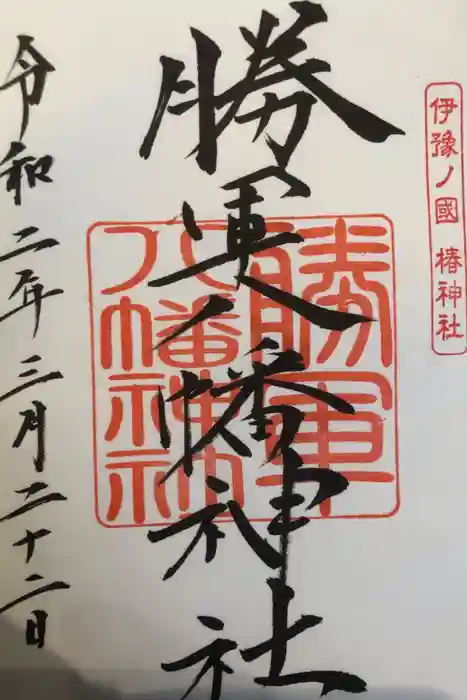 伊豫ノ國 椿神社
勝軍八幡神社
勝軍
八幡神社
令和二年三月二十二日